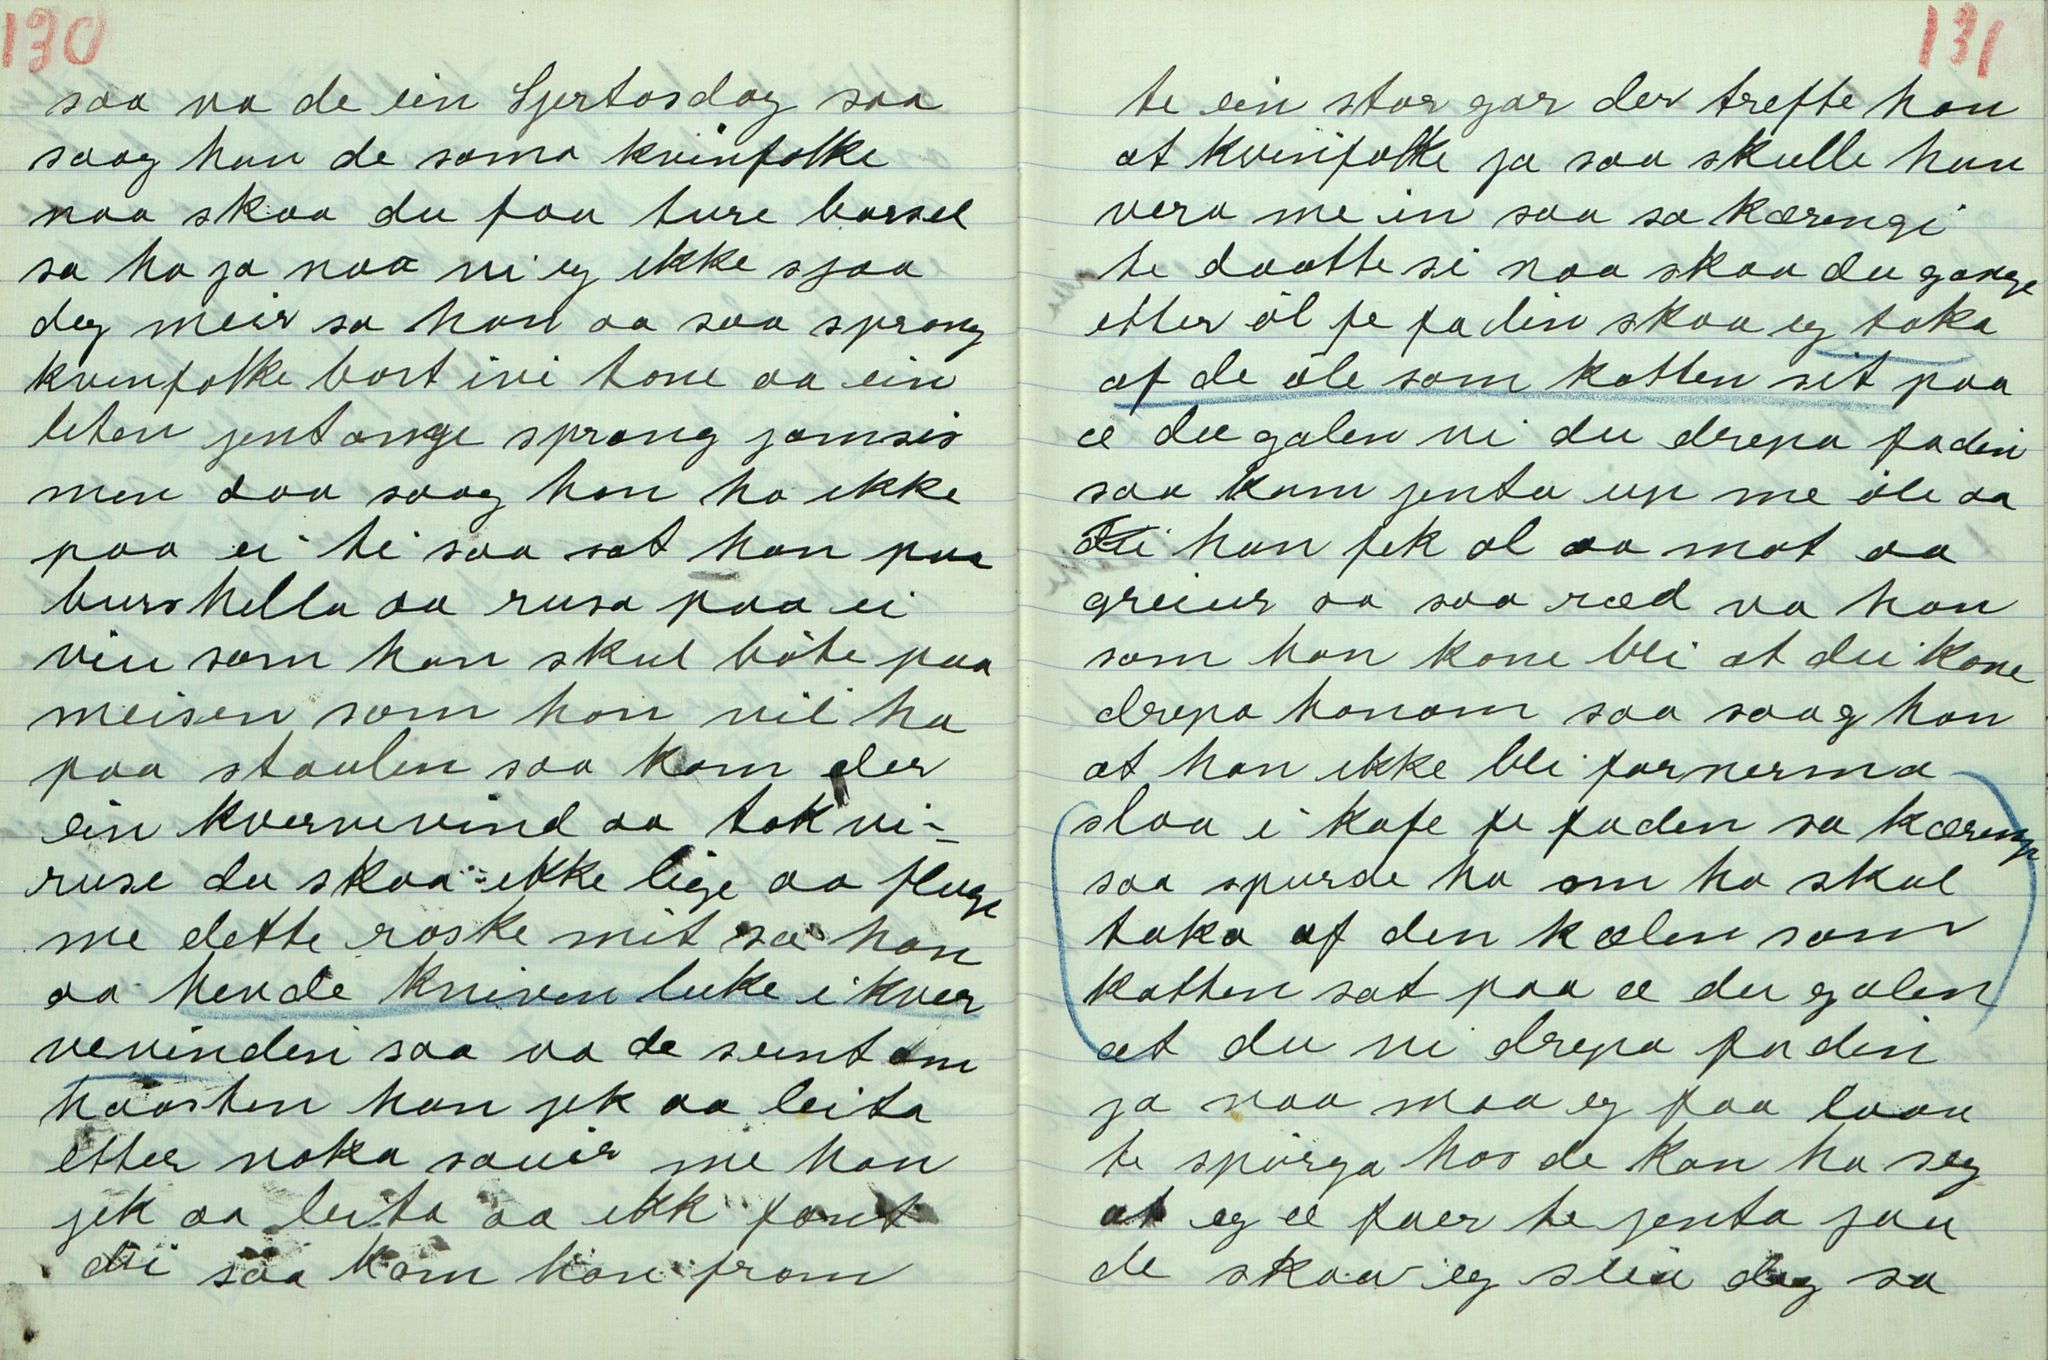 130
saa va de ein Sjertosdag saa
saag han de soma kvinfolke
naa skaa du faa ture barsel
sa ho ja naa vi eg ikke sjaa
deg meir sa han aa saa sprang
kvinfolke bort ivi tone aa ein
liten jentonge sprang jamsis
men daa saag han ho ikke
paa ei ti saa sat han paa
burshella aa rusa paa ei
viu som han skul böte paa
meisen som han vil ha
paa staulen saa kom der
ein kvervevind aa tok vi-
ruse du skaa ikke lige aa fluge
me dette raske mit sa han
aa hende kniven luke i kver
vevinden saa va de seint om
haasten han jek aa leita
etter noka sauir me han
jek aa leita aa ikk fant
dei saa kom han fram
131
te ein stor gar der trefte han
at kvinfolke ja saa skulle han
vera me in saa sa kærengi
te daatte si naa skaa du gange
etter öl fe fa din skaa eg taka
af de öle som katten sit paa
æ du galen vi du drepa fa din
saa kom jenta up me öle aa
han fek öl aa mat aa
greiur aa saa ræd va han
som han kone bli at dei kone
drepa honom saa saag han
at han ikke bli fornerma
slaa i kafe fe faden sa kærengi
saa spurde ho om ho skul
taka af den kælen som
katten sat paa æ du galen
at du vi drepa fa din
ja naa maa eg faa laau
te spörga hos de kan ha seg
at eg æ faer te jenta jau
de skaa eg seia deg sa